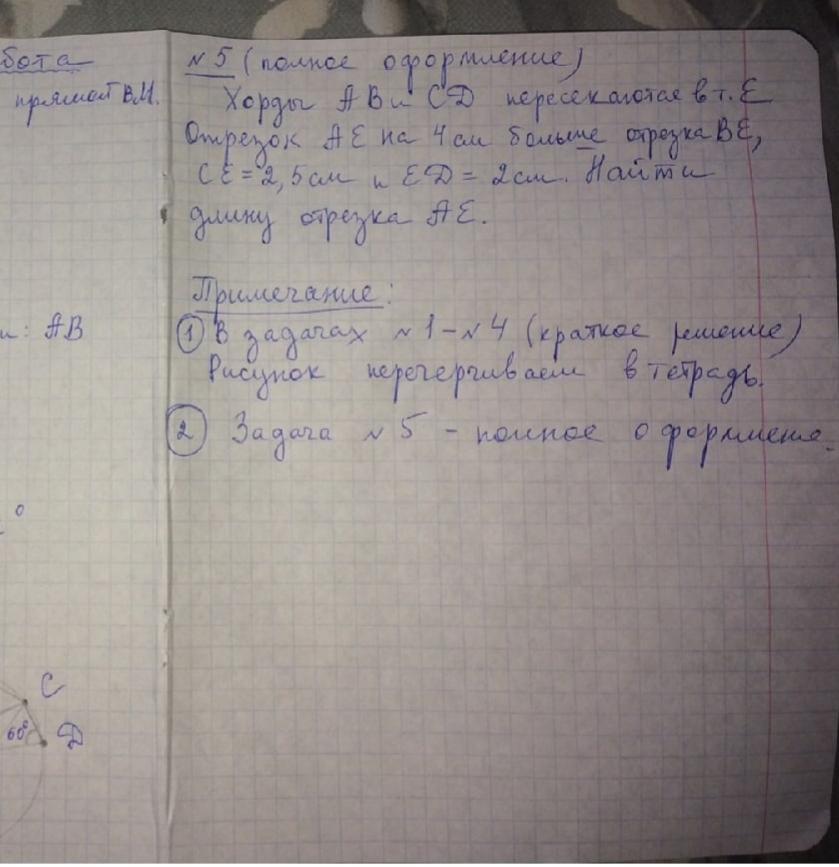 бота
прямой ВМ.
№5 (полное оформление)
Хорды АВ и CD пересекаются в т. Е
Отрезок АЕ на 4 см больше отрезка ВЕ,
СЕ = 2,5 см и ЕD = 2 см. Найти
длину отрезка АЕ.
Примечание:
и: АВ
① В задачах №1 – №4 (краткое решение)
Рисунок перечерчиваем в тетрадь.
② Задача №5 – полное оформление.
0
C
60°
D